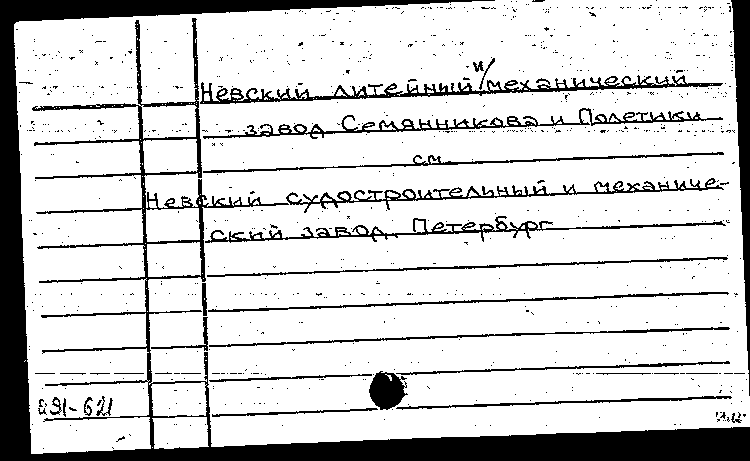 Невский литейный и механический
завод Семянникова и Полетики
см.
Невский судостроительный и механиче-
ский завод. Петербург
891-621